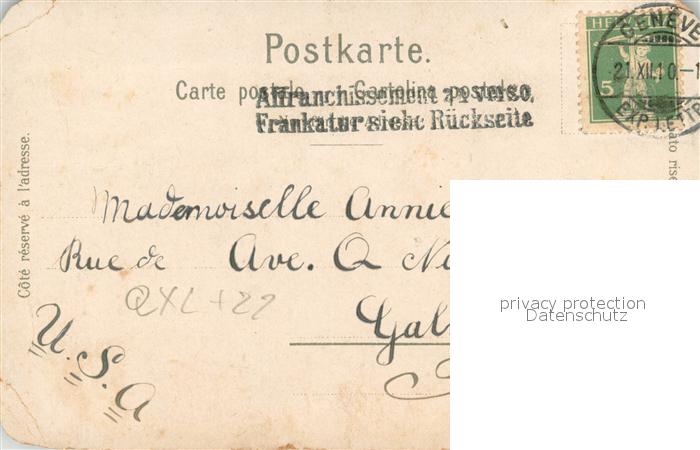 Postkarte.
Carte postale. Cartolina postale.
Affranchissement au verso.
Frankatur siehe Rückseite
HELVETIA
5
GENÈVE
21.XII.10.–1
EXP. LETTR
Côté réservé à l'adresse.
Mademoiselle Annie
Rue de Ave. Q
QXL+22
Gal
U.S.A
privacy protection
Datenschutz